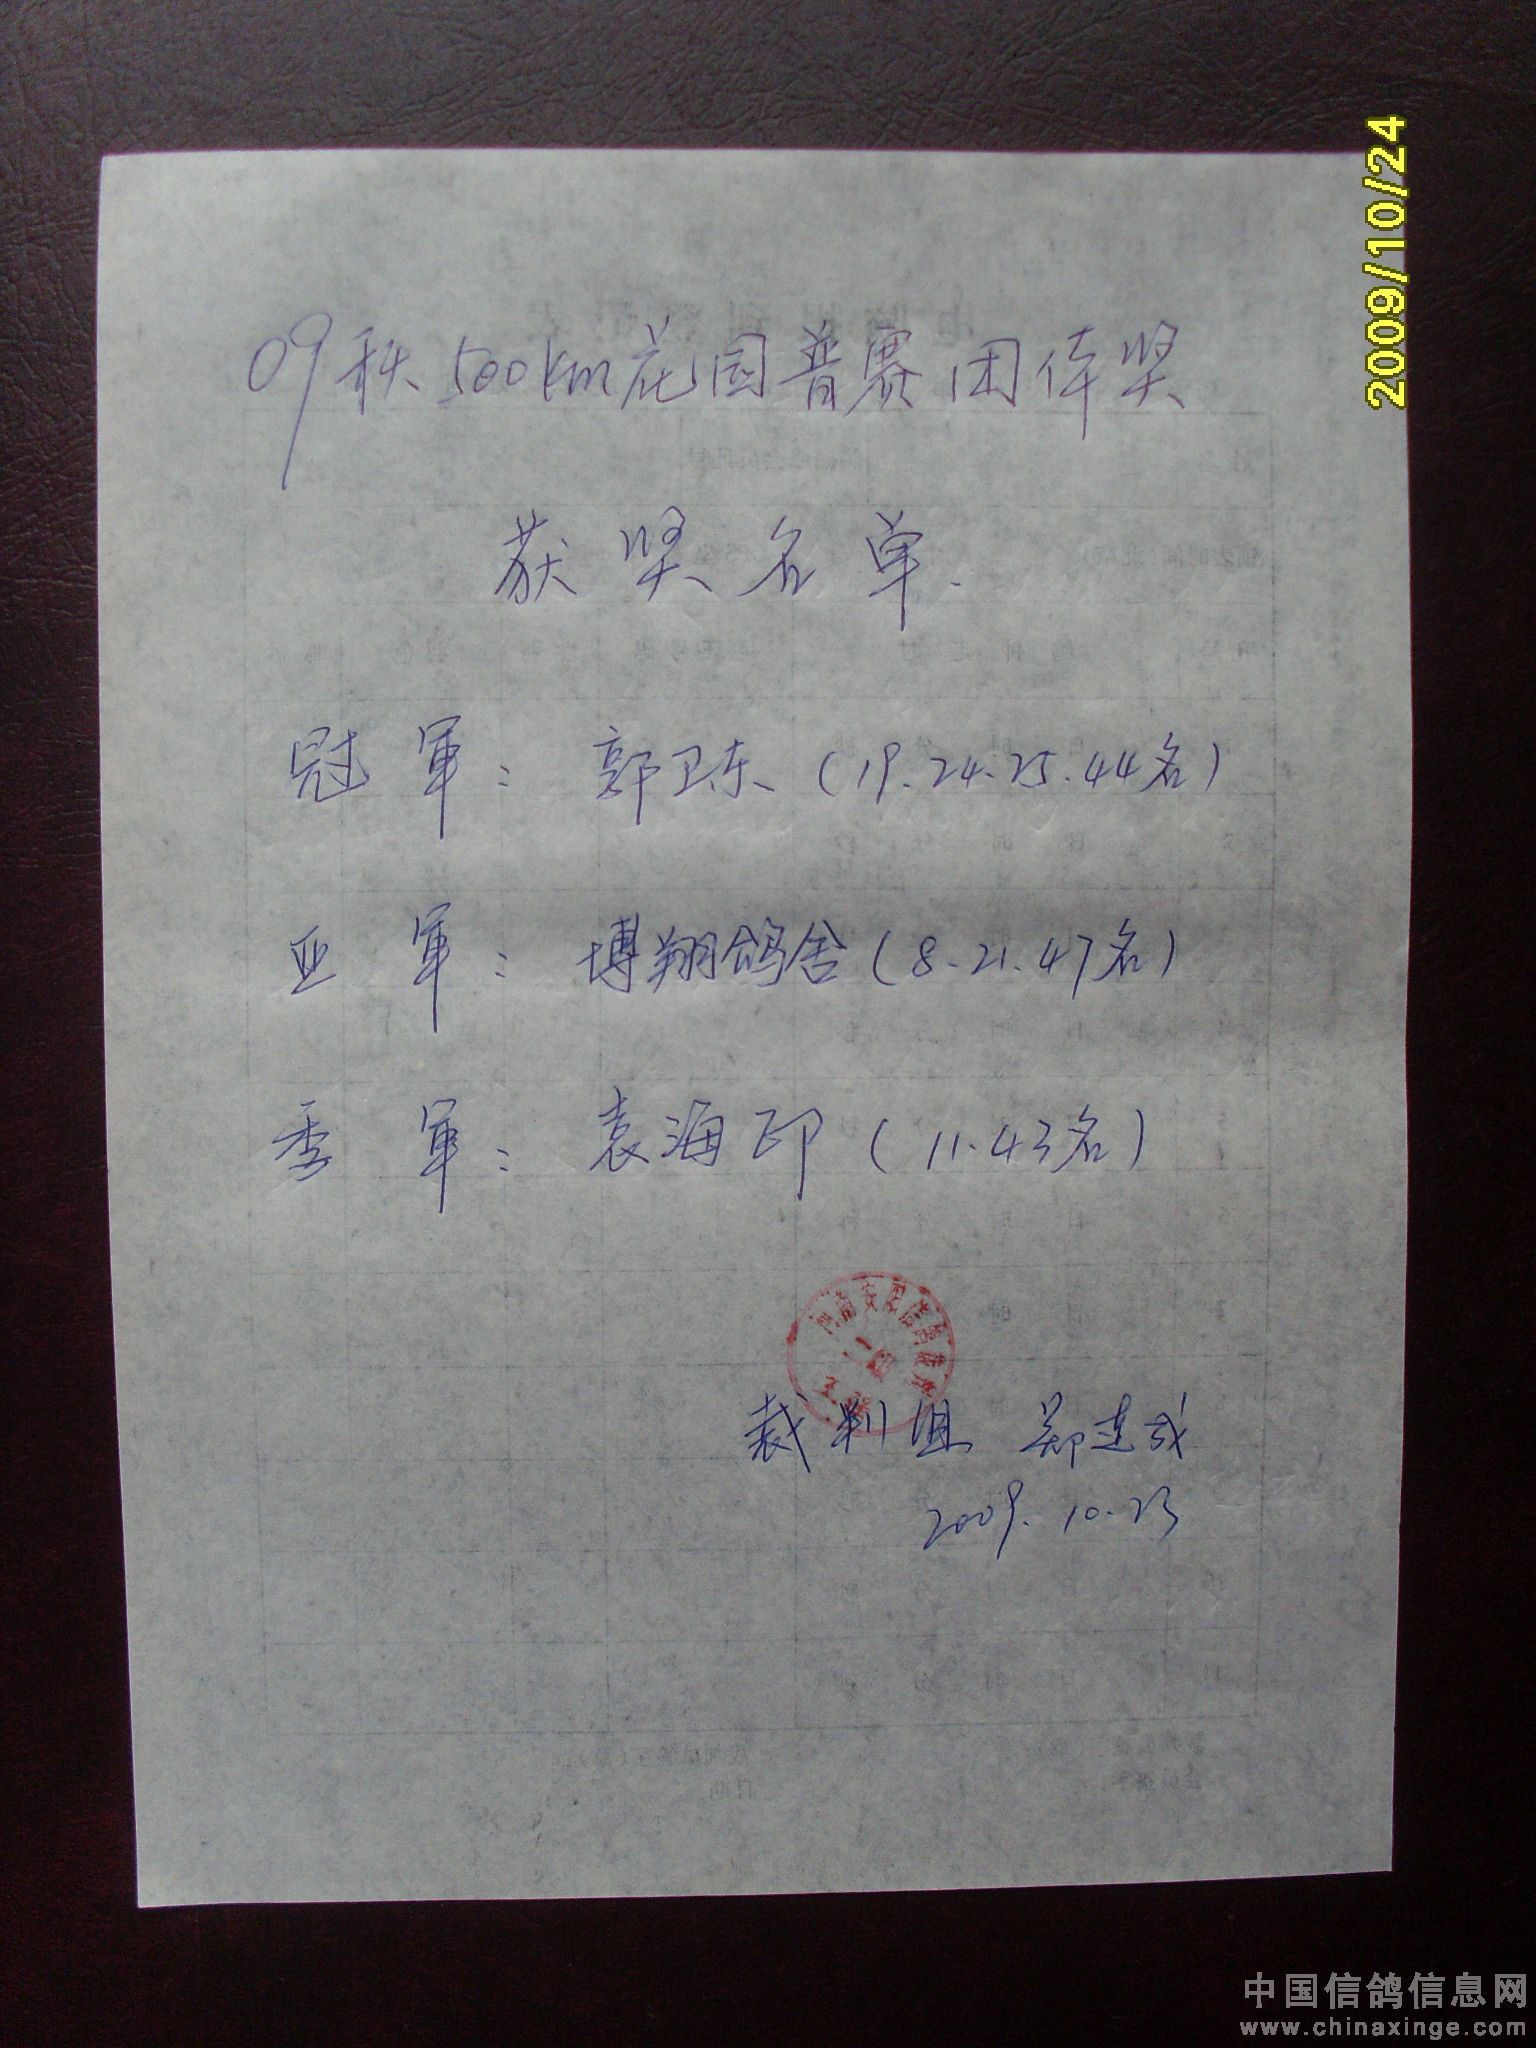 2009/10/24
09秋500km花园普赛团体奖
获奖名单.
冠军：郭卫东（19.24.25.44名）
亚军：博翔鸽舍（8.21.47名）
季军：袁海印（11.43名）
裁判组 郑连成
2009.10.23
中国信鸽信息网
www.chinaxinge.com